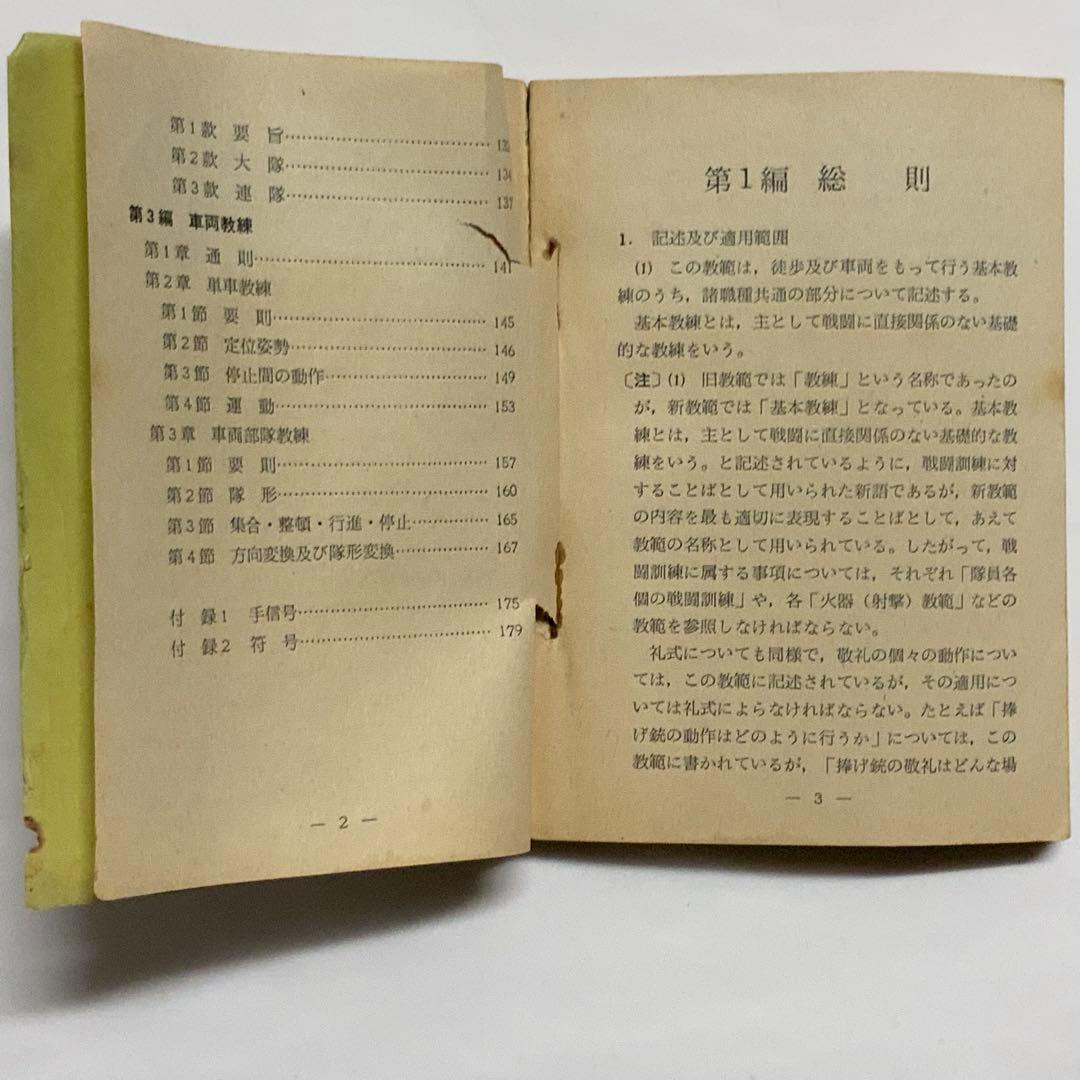 第1款 要 旨……………………………
第2款 大 隊…………………………… 134
第3款 連 隊…………………………… 137
第3編 車両教練
第1章 通 則…………………………… 141
第2章 単車教練
第1節 要 則…………………………… 145
第2節 定位姿勢…………………………… 146
第3節 停止間の動作…………………………… 149
第4節 運 動…………………………… 153
第3章 車両部隊教練
第1節 要 則…………………………… 157
第2節 隊 形…………………………… 160
第3節 集合・整頓・行進・停止…………… 165
第4節 方向変換及び隊形変換…………… 167
付 録1 手信号…………………………… 175
付 録2 符 号…………………………… 179
— 2 —
第1編 総 則
1. 記述及び適用範囲
(1) この教範は,徒歩及び車両をもって行う基本教
練のうち,諸職種共通の部分について記述する。
基本教練とは,主として戦闘に直接関係のない基礎
的な教練をいう。
〔注〕(1) 旧教範では「教練」という名称であったの
が,新教範では「基本教練」となっている。基本教
練とは,主として戦闘に直接関係のない基礎的な教
練をいう。と記述されているように,戦闘訓練に対
することばとして用いられた新語であるが,新教範
の内容を最も適切に表現することばとして,あえて
教範の名称として用いられている。したがって,戦
闘訓練に属する事項については,それぞれ「隊員各
個の戦闘訓練」や,各「火器(射撃)教範」などの
教範を参照しなければならない。
礼式についても同様で,敬礼の個々の動作につい
ては,この教範に記述されているが,その適用につ
いては礼式によらなければならない。たとえば「捧
げ銃の動作はどのように行うか」については,この
教範に書かれているが,「捧げ銃の敬礼はどんな場
— 3 —